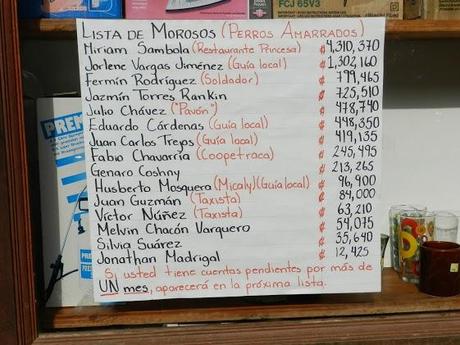 FCJ 65V3
LISTA DE MOROSOS (PERROS AMARRADOS)
Miriam Sambola (Restaurante Princesa) ₡4,310,370
Jorlene Vargas Jiménez (Guía local) ₡1,302,160
Fermín Rodríguez (Soldador) ₡799,465
Jazmín Torres Rankin ₡725,510
Julio Chávez ("Pavón") ₡478,740
Eduardo Cárdenas (Guía local) ₡448,350
Juan Carlos Treps (Guía local) ₡419,135
Fabio Chavarría (Coopetraca) ₡245,495
Genaro Coshny ₡213,265
Husberto Mosquera (Micaly)(Guía local) ₡96,900
Juan Guzmán (Taxista) ₡84,000
Víctor Núñez (Taxista) ₡63,210
Melvin Chacón Varquero ₡54,075
Silvia Suárez ₡35,640
Jonathan Madrigal ₡12,425
Si usted tiene cuentas pendientes por más de
UN mes, aparecerá en la próxima lista.
PREM